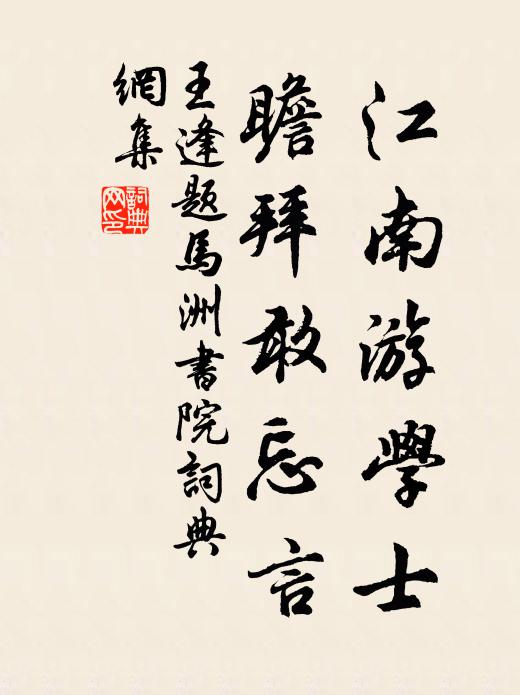 江南游學士
瞻拜敢忘言
王逢題馬洲書院詞典
網集
詞典網印